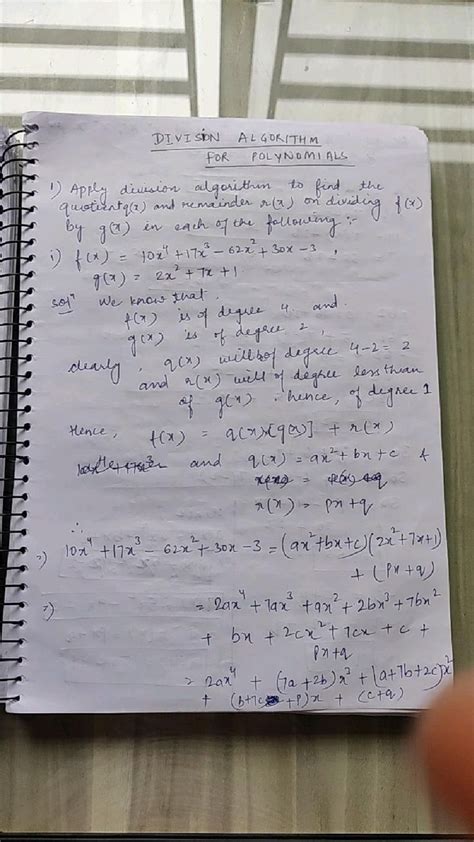 DIVISION ALGORITHM
FOR POLYNOMIALS
1) Apply division algorithm to find the
quotient q(x) and remainder r(x) on dividing f(x)
by g(x) in each of the following :-
i) f(x) = 10x⁴ + 17x³ - 62x² + 30x - 3 ,
g(x) = 2x² + 7x + 1
Solⁿ We know that
f(x) is of degree 4 and
g(x) is of degree 2,
clearly, q(x) will of degree 4-2=2
and r(x) will of degree less than
of g(x) hence, of degree 1
Hence, f(x) = q(x)[g(x)] + r(x)
and q(x) = ax² + bx + c &
r(x) = px + q
∴
⇒) 10x⁴ + 17x³ - 62x² + 30x - 3 = (ax² + bx + c)(2x² + 7x + 1)
+ (px + q)
⇒) = 2ax⁴ + 7ax³ + ax² + 2bx³ + 7bx²
+ bx + 2cx² + 7cx + c +
px + q
= 2ax⁴ + (7a + 2b)x³ + (a + 7b + 2c)x²
+ (b + 7c + p)x + (c + q)